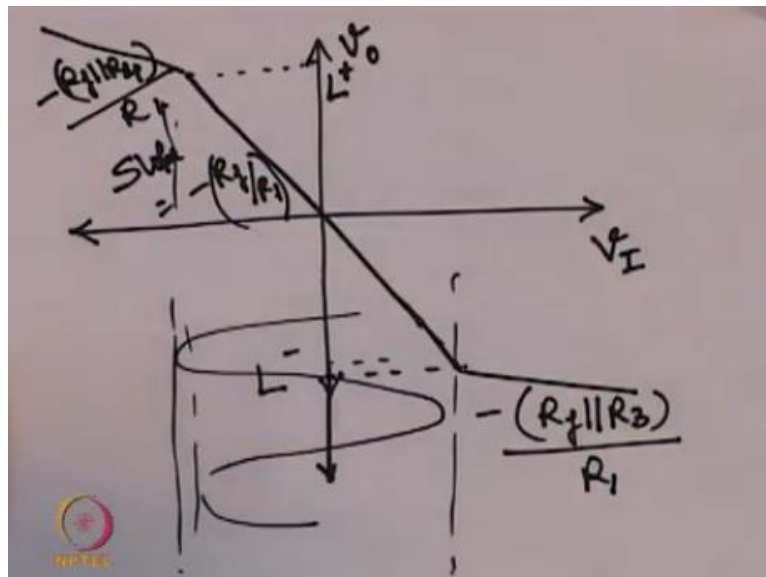 v₀
L⁺
-(R_f||R₄)
R₁
-(R_f/R₁)
V_I
L⁻
-(R_f||R₃)
R₁
NPTEL